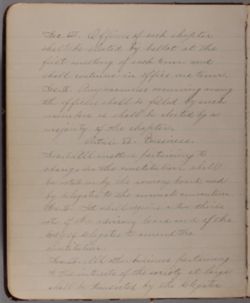 Sec. 5. Officers of each chapter
shall be elected by ballot at the
first meeting of each term and
shall continue in office one term.
Sec. 6. Any vacancies occurring among
the officers shall be filled by such
members as shall be elected by a
majority of the chapter.
Business.
Sec. 1. All matters pertaining to
changes in the constitution shall
be voted on by the advisory board and
by delegates to the annual convention
Sec. 2. It shall require a two thirds
vote of the advisory board and of the
body of delegates to amend the
constitution.
Sec. 3. All other business pertaining
to the interests of the society at large
shall be transacted by the delegates